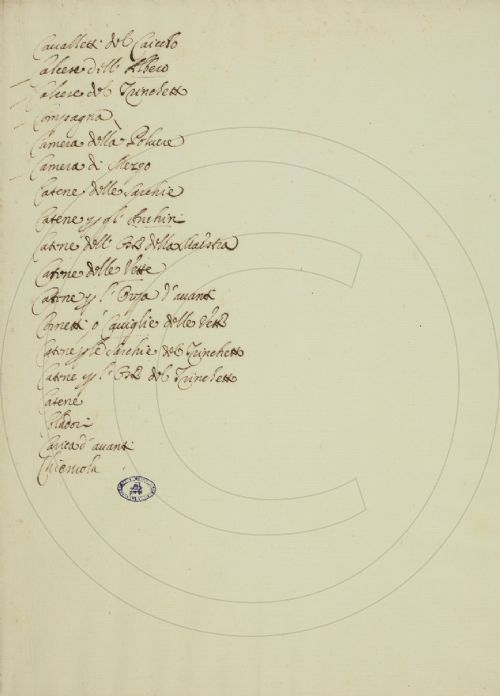 Cavalletti del Caicco
Calcese dell' Albero
Calcese del Trinchetto
Compagna
Camera della Polvere
Camera di Mezzo
Catene delle Sarchie
Catene p gl' Anchini
Catene dell' della Maistra
Catene delle Vette
Catene p l' Orza d'avanti
Cornetti ó Caviglie delle Vette
Catene p le Sarchie del Trinchetto
Catene p l' del Trinchetto
Catene
Coladori
Carica d'avanti
Chiomola